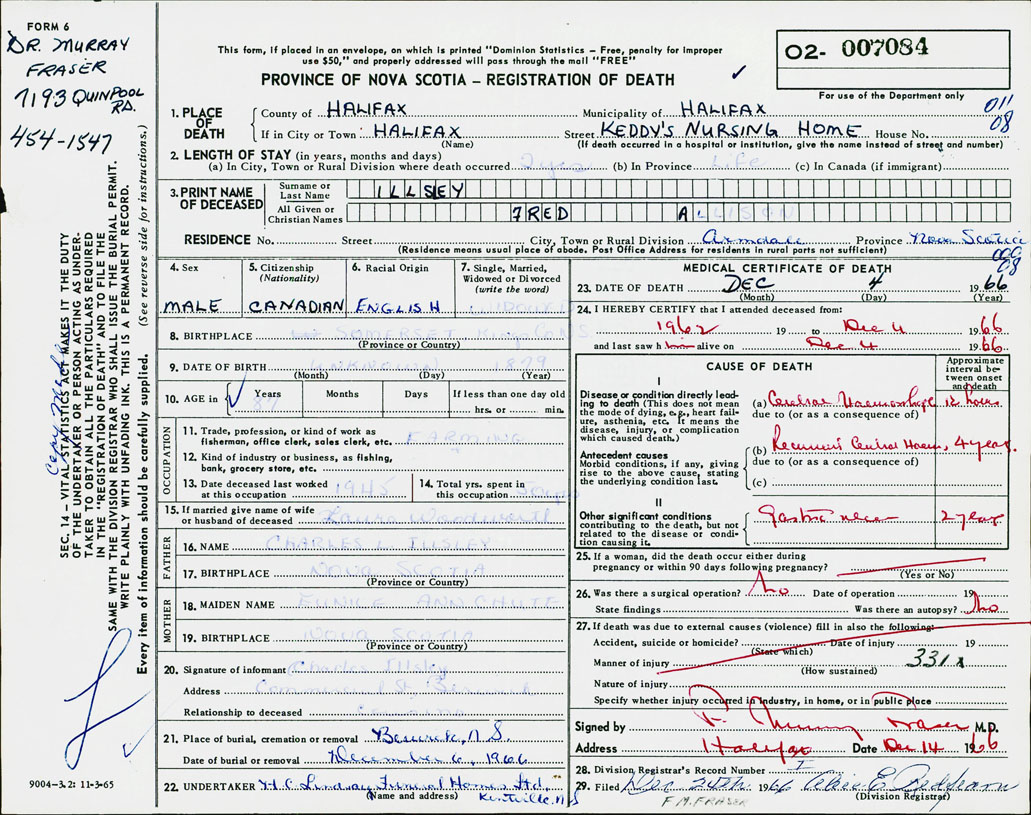 FORM 6
DR. MURRAY
FRASER
7193 QUINPOOL
RD.
454-1547
This form, if placed in an envelope, on which is printed "Dominion Statistics – Free, penalty for improper
use $50," and properly addressed will pass through the mail "FREE"
PROVINCE OF NOVA SCOTIA – REGISTRATION OF DEATH ✓
02- 007084
For use of the Department only
011
08
1. PLACE OF DEATH
County of HALIFAX Municipality of HALIFAX
If in City or Town HALIFAX Street KEDDY'S NURSING HOME House No.
(Name) (If death occurred in a hospital or institution, give the name instead of street and number)
2. LENGTH OF STAY (in years, months and days)
(a) In City, Town or Rural Division where death occurred 2 yrs (b) In Province Life (c) In Canada (if immigrant)
3. PRINT NAME OF DECEASED
Surname or Last Name ILLSLEY
All Given or Christian Names FRED ALLISON
RESIDENCE No. Street City, Town or Rural Division Armdale Province Nova Scotia
(Residence means usual place of abode. Post Office Address for residents in rural parts not sufficient)
000
08
4. Sex
MALE
5. Citizenship (Nationality)
CANADIAN
6. Racial Origin
ENGLISH
7. Single, Married, Widowed or Divorced (write the word)
WIDOWED
8. BIRTHPLACE SOMERSET Kings Co NS
(Province or Country)
9. DATE OF BIRTH UNKNOWN 1879
(Month) (Day) (Year)
10. AGE in ✓ Years 87 Months Days If less than one day old
hrs. or min.
OCCUPATION
11. Trade, profession, or kind of work as
fisherman, office clerk, sales clerk, etc. FARMING
12. Kind of industry or business, as fishing,
bank, grocery store, etc.
13. Date deceased last worked
at this occupation 1945
14. Total yrs. spent in
this occupation
15. If married give name of wife
or husband of deceased Laura Woodworth
FATHER
16. NAME CHARLES L. ILLSLEY
17. BIRTHPLACE NOVA SCOTIA
(Province or Country)
MOTHER
18. MAIDEN NAME EUNICE ANN CHUTE
19. BIRTHPLACE NOVA SCOTIA
(Province or Country)
20. Signature of informant Charles Illsley
Address Commercial St. Berwick
Relationship to deceased
21. Place of burial, cremation or removal Berwick, N.S.
Date of burial or removal December 6, 1966
22. UNDERTAKER H.C. Lindsay Funeral Homes Ltd.
(Name and address) Kentville, N.S.
MEDICAL CERTIFICATE OF DEATH
23. DATE OF DEATH DEC 4 1966
(Month) (Day) (Year)
24. I HEREBY CERTIFY that I attended deceased from:
1962 19 to Dec 4 1966
and last saw h im alive on Dec 4 1966
CAUSE OF DEATH
Approximate interval between onset and death
I
Disease or condition directly leading to death (This does not mean the mode of dying, e.g., heart failure, asthenia, etc. It means the disease, injury, or complication which caused death.)
(a) Cerebral Haemorrhage 12 hours
due to (or as a consequence of)
Antecedent causes
Morbid conditions, if any, giving rise to the above cause, stating the underlying condition last.
(b) Recurrent Cerebral Haem. 4 years.
due to (or as a consequence of)
(c)
II
Other significant conditions
contributing to the death, but not related to the disease or condition causing it.
Gastric ulcer 2 years
25. If a woman, did the death occur either during
pregnancy or within 90 days following pregnancy?
(Yes or No)
26. Was there a surgical operation? No Date of operation 19
State findings Was there an autopsy? No
27. If death was due to external causes (violence) fill in also the following:
Accident, suicide or homicide? Date of injury 19
(State which)
Manner of injury 331x
(How sustained)
Nature of injury
Specify whether injury occurred in industry, in home, or in public place
Signed by F. Murray Fraser M.D.
Address Halifax Date Dec 14 1966
28. Division Registrar's Record Number
29. Filed Dec 20th 1966
F.M. FRASER (Division Registrar)
SEC. 14 – VITAL STATISTICS ACT MAKES IT THE DUTY
OF THE UNDERTAKER OR PERSON ACTING AS UNDER-
TAKER TO OBTAIN ALL THE PARTICULARS REQUIRED
IN THE "REGISTRATION OF DEATH" AND TO FILE THE
SAME WITH THE DIVISION REGISTRAR WHO SHALL ISSUE THE BURIAL PERMIT.
WRITE PLAINLY WITH UNFADING INK. THIS IS A PERMANENT RECORD.
Every item of information should be carefully supplied. (See reverse side for instructions.)
9004–3.2: 11-3-65